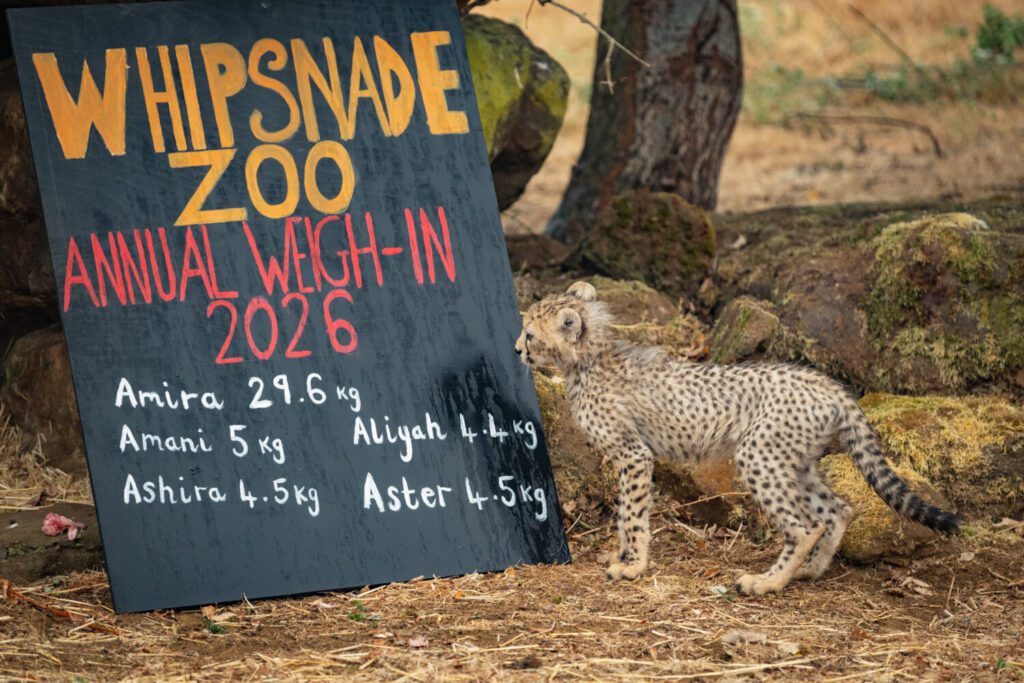 WHIPSNADE
ZOO
ANNUAL WEIGH-IN
2026
Amira 29.6 kg
Amani 5 kg
Aliyah 4.4 kg
Ashira 4.5 kg
Aster 4.5 kg